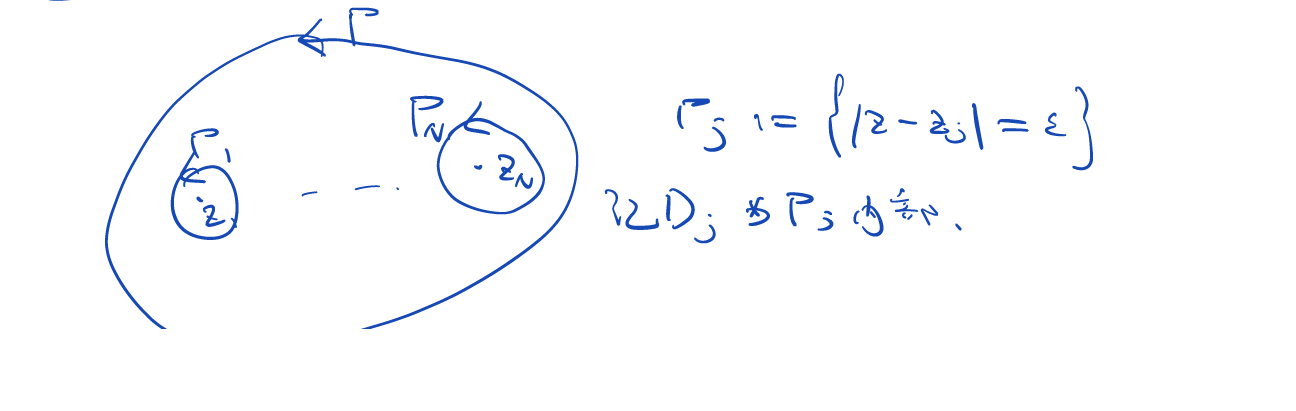 Γ
Γ₁
z₁
- - - .
Γ_N
z_N
Γ_j := { |z - z_j| = ε }
记 D_j 为 Γ_j 的